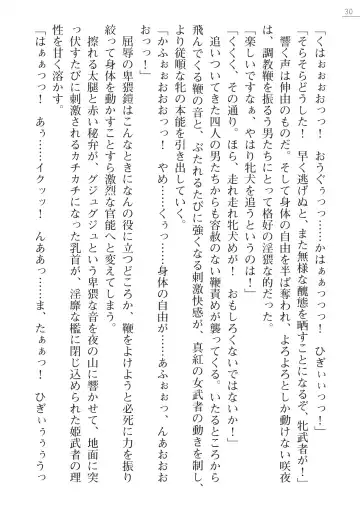 30
「くはぉぉぉおっっ！　おうぐぅっっ……かはぁぁっっっ！　ひぎぃぃっっ！」
「そらそらどうした！　早く逃げぬと、また無様な醜態を晒すことになるぞ、牝武者が！」
　響く声は伸由のものだ。そして身体の自由を半ば奪われ、よろよろとしか動けない咲夜
は、調教鞭を振るう男たちにとって格好の淫猥な的だった。
「楽しいですなぁ、やはり牝犬を追うというのは！」
「くくく、その通り。ほら、走れ走れ牝犬めが！　おもしろくないではないか！」
　追いついてきた四人の男たちからも容赦のない鞭責めが襲いくる。いたるところから
飛んでくる鞭の音と、ぶたれるたびに強くなる刺激快感が、真紅の女武者の動きを制し、
より従順な牝の本能を引き出していく。
「かふぉぉおおおっっ！　やめ……くぅっっ……身体の自由が……あふぉぉっ、んあおおっっ」
　屈辱の卑猥鎧はこんなときになんの役に立つどころか、鞭をよけようと必死に力を振り
絞って身体を動かすことすら激烈な官能へと変えてしまう。
　擦れる太腿と赤い秘弁が、グジュグジュという卑猥な音を夜の山に響かせて、地面に突
っ伏すたびに刺激されるカチカチになった乳首が、淫靡な檻に閉じ込められた姫武者の理
性を甘く溶かす。
「はぁぁっっ！　あぅ……イクッッ！　んああっっ……ま、たぁぁっっ！　ひぎぃぅぅぅうっ